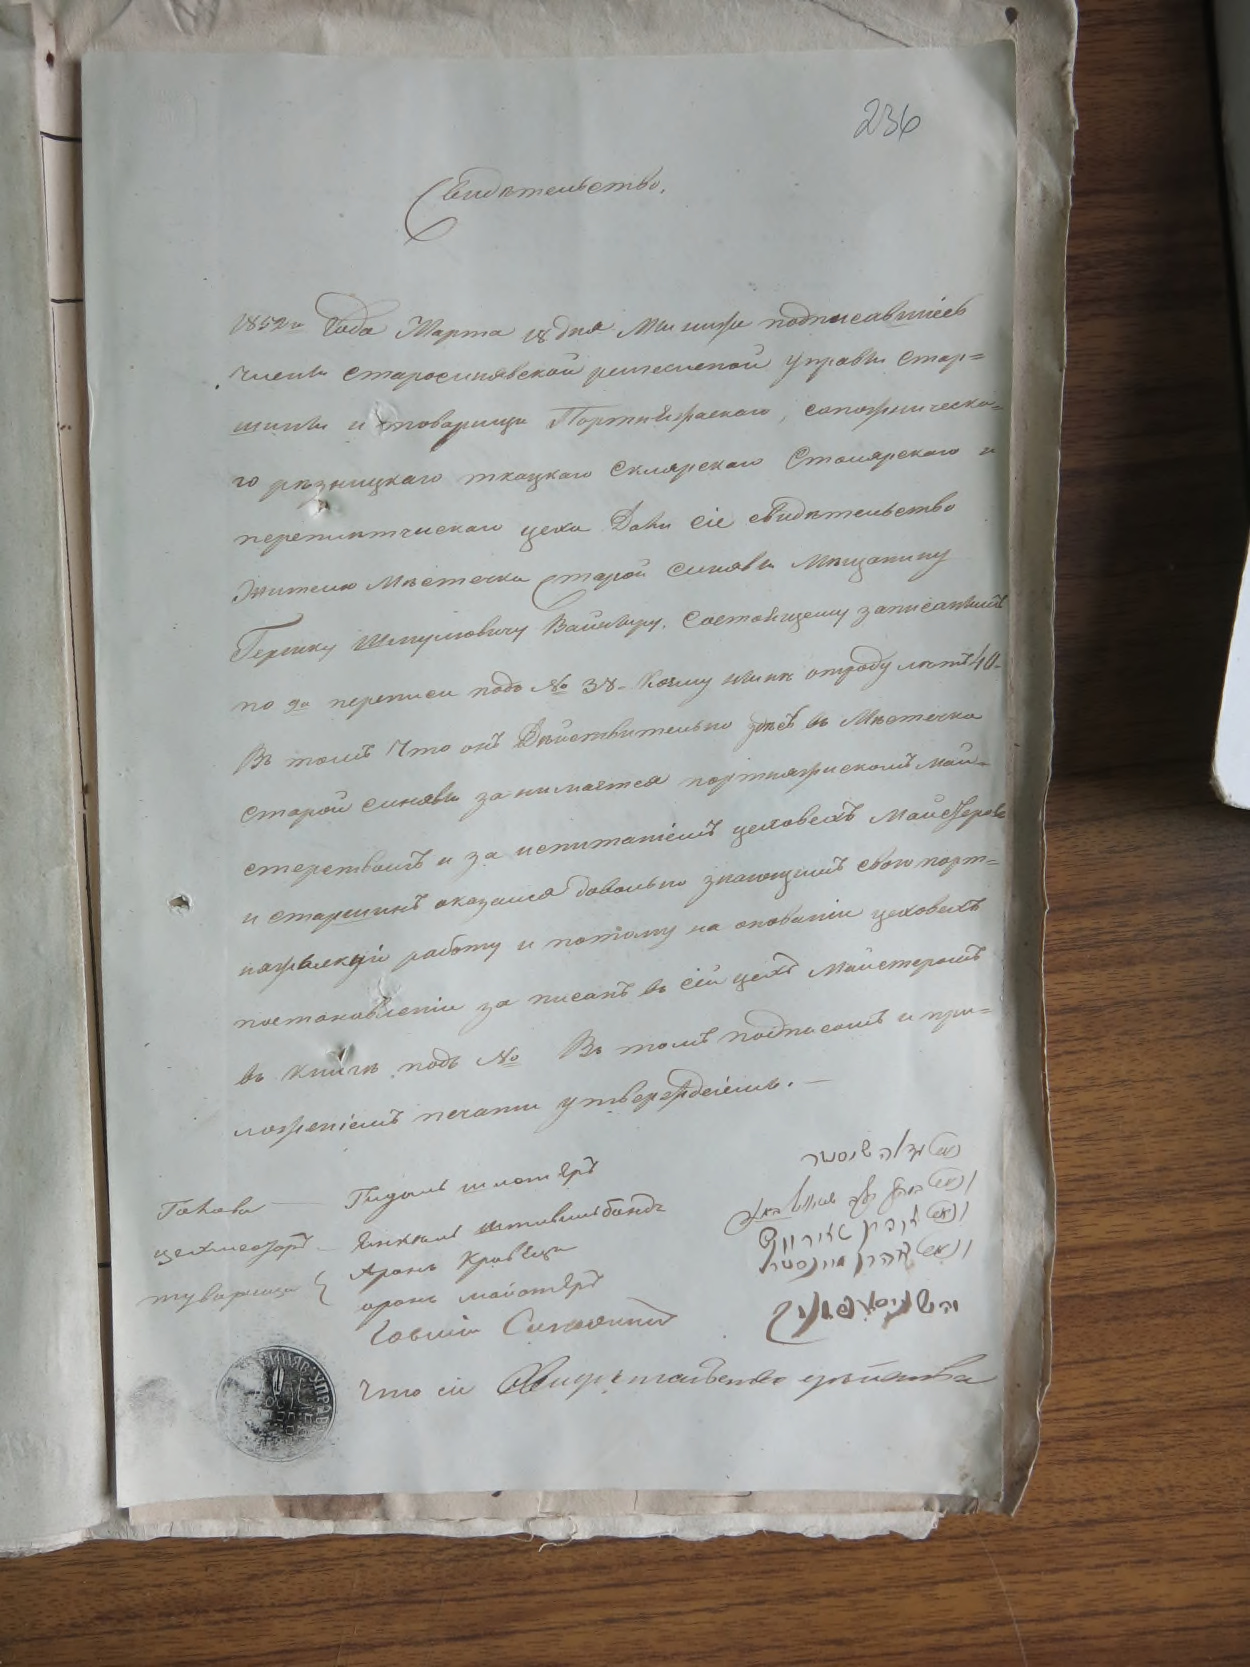 236
Свидѣтельство.
1852го Года Марта 18 дня Мы ниже подписавшіесь
члены старосинявской ремесленой управы стар=
шины и товарищи Портняжскаго, сапожническа=
го рѣзницкаго ткацкаго склярскаго Столярскаго и
переплетческаго цеха Дали сіе свидѣтельство
Жителю Мѣстечка Старой синявы Мѣщанину
Гершку Шмулювичу Вайнбуру. Состоящему записаннымъ
по 9й переписи подъ № 38- коему нынѣ отроду лѣтъ 40-
Въ томъ что онъ Дѣйствительно здѣсь въ Мѣстечкѣ
старой синявы занимается портняжескомъ май=
стерствомъ и за испитаніемъ цеховехъ Майстеровъ
и старшинъ оказался довольно знающимъ свою порт=
няжескуй работу и потому на оновании цеховехъ
постановленіи за писанъ въ сей цехъ Майстеромъ
въ книгѣ подъ № Въ томъ подписомъ и при=
ложеніемъ печати утверждаемъ. —
Голова — Гидаль шистеръ
цехместръ —
тувариши { Аронъ Кравецъ
аронъ майстеръ
Что сіе Свидѣтельство
УПРАВ